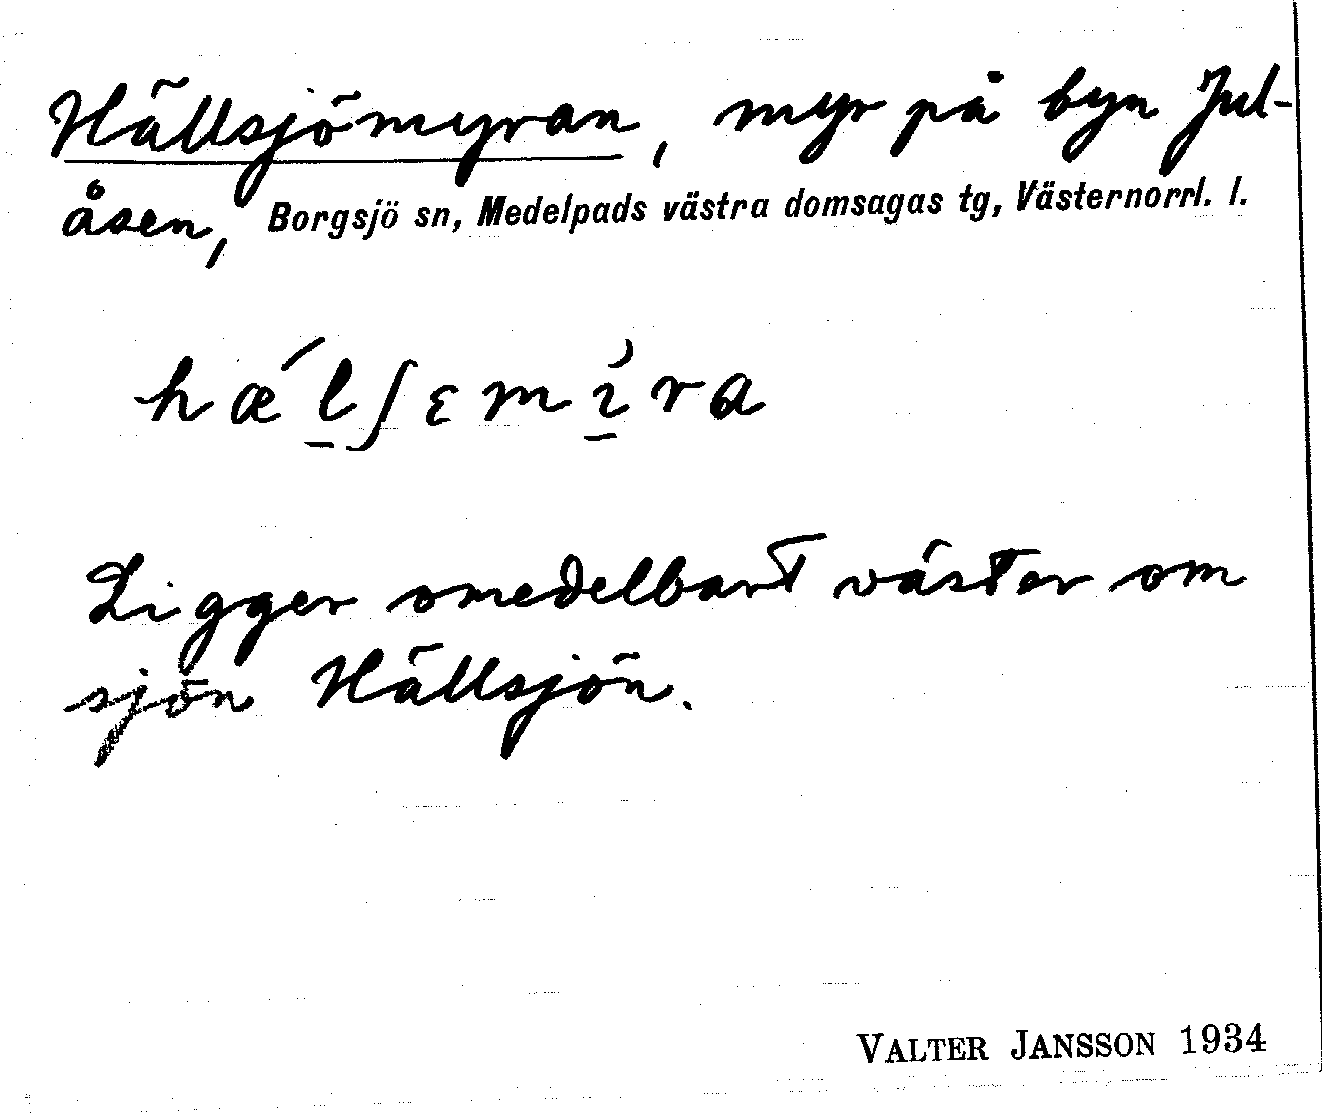 Hällsjömyran, myr på byn Jul-
åsen, Borgsjö sn, Medelpads västra domsagas tg, Västernorrl. l.
hæ´l̲ʃɛmı̲̀ra
Ligger omedelbart väster om
sjön Hällsjön.
VALTER JANSSON 1934